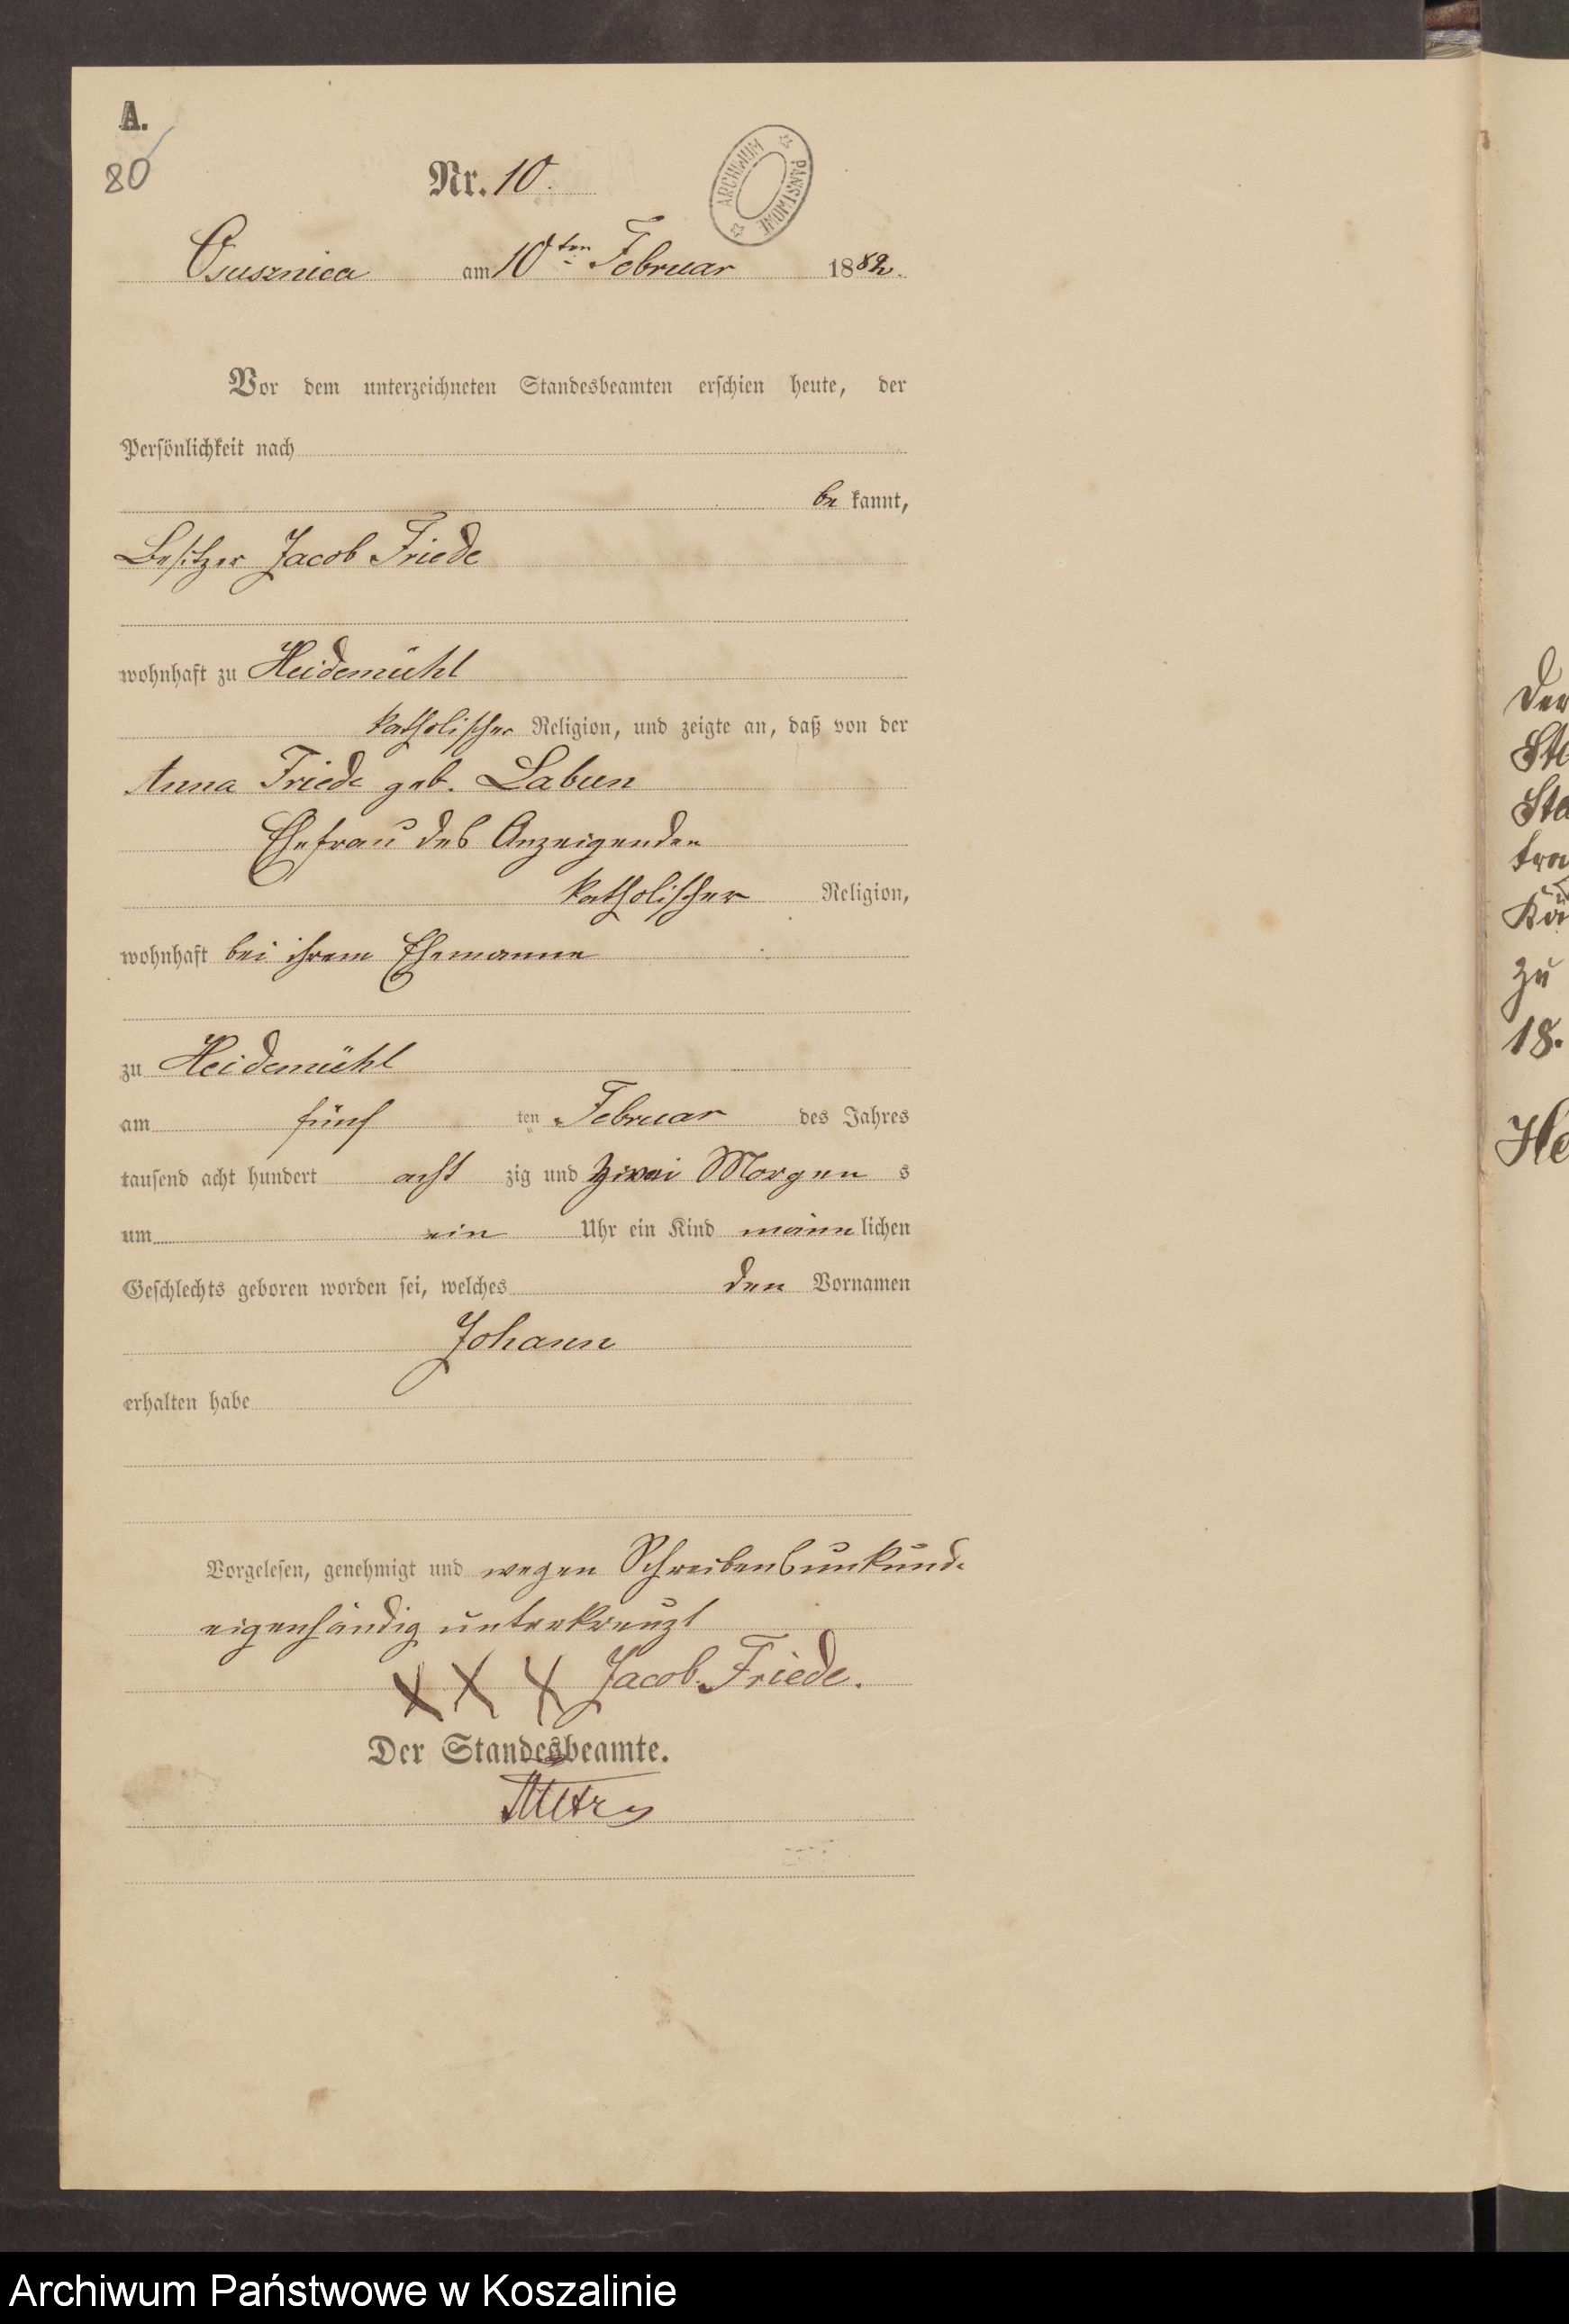 A.
80
Nr. 10.
ARCHIWUM PAŃSTWOWE
Osusznica am 10ten Februar 1882.
Vor dem unterzeichneten Standesbeamten erschien heute, der
Persönlichkeit nach
be kannt,
Besitzer Jacob Friede
wohnhaft zu Heidemühl
katholischer Religion, und zeigte an, daß von der
Anna Friede geb. Labun
Ehefrau des Anzeigenden
katholischer Religion,
wohnhaft bei ihrem Ehemanne
zu Heidemühl
am fünf ten Februar des Jahres
tausend acht hundert acht zig und zwei Morgen s
um ein Uhr ein Kind männ lichen
Geschlechts geboren worden sei, welches den Vornamen
Johann
erhalten habe
Vorgelesen, genehmigt und wegen Schreibensunkunde
eigenhändig unterkreuzt
XXX Jacob Friede.
Der Standesbeamte.
der
Ste
Sta
tra
Kön
zu
18.
He
Archiwum Państwowe w Koszalinie